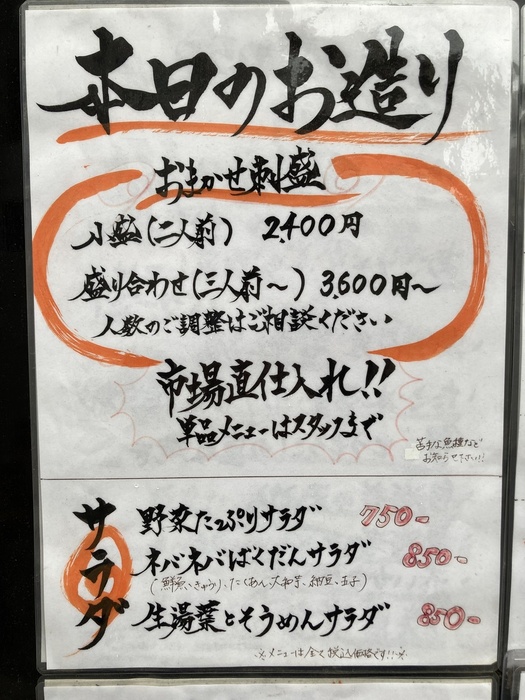 本日のお造り
おまかせ刺盛
小盛(二人前) 2,400円
盛り合わせ(三人前〜) 3,600円〜
人数のご調整はご相談ください
市場直仕入れ!!
単品メニューはスタッフまで
苦手な魚種など
お知らせ下さい!!
サラダ
野菜たっぷりサラダ 750-
ネバネバばくだんサラダ 850-
(鮮魚、きゅうり、たくあん、大和芋、納豆、玉子)
生湯葉とそうめんサラダ 850-
※メニューは全て税込価格です!!※